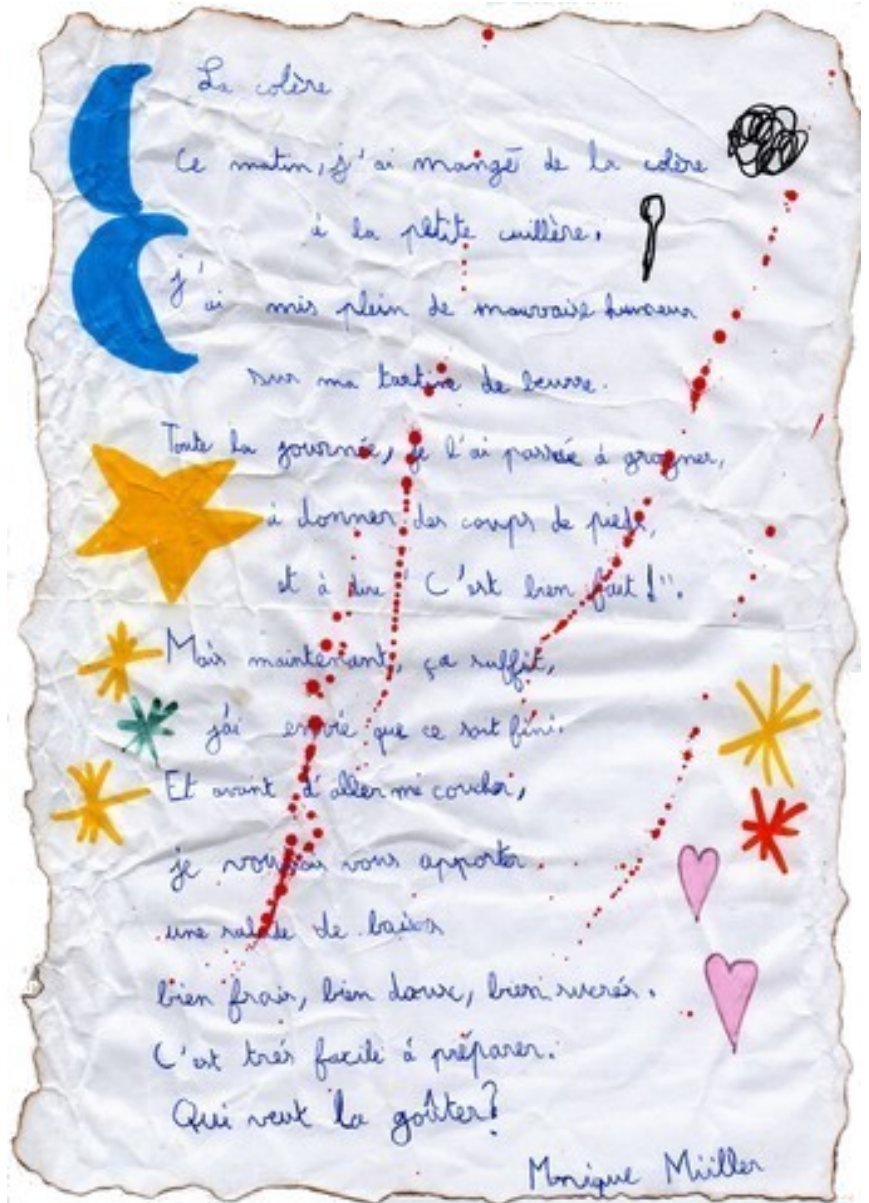 La colère
Ce matin, j'ai mangé de la colère
à la petite cuillère.
j'ai mis plein de mauvaise humeur
sur ma tartine de beurre.
Toute la journée, je l'ai passée à grogner,
à donner des coups de pieds,
et à dire " C'est bien fait !".
Mais maintenant, ça suffit,
j'ai envie que ce soit fini.
Et avant d'aller me coucher,
je voudrais vous apporter
une salade de baisers
bien frais, bien doux, bien sucrés.
C'est trés facile à préparer.
Qui veut la goûter?
Monique Müller